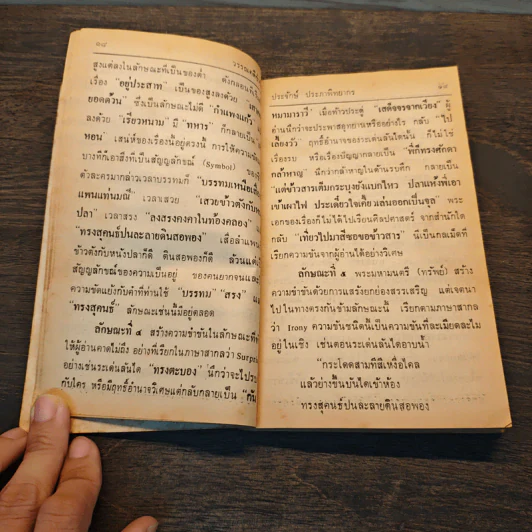 ๑๘
วรรณคดี
สูงแต่ลงในลักษณะที่เป็นของต่ำ
เรื่อง "อยู่ประสาท" เป็นของสูงลงด้วย
ยอดด้วน" ซึ่งเป็นลักษณะไม่ดี "กำแพงแก้ว"
ลงด้วย "เรียวหนาม" มี "ทหาร" ก็กลายเป็น
หอน" เสน่ห์ของเรื่องนี้อยู่ตรงนี้ การให้ความ
บางทีก็เอาสิ่งที่เป็นสัญญลักษณ์ (Symbol)
ตัวละครมากล่าวเวลาบรรทมก็ "บรรทมเหนือเสื่อ
แพนแท่นมณี" เวลาเสวย "เสวยข้าวตังกับ
ปลา" เวลาสรง "ลงสรงคงคาในท้องคลอง"
"ทรงสุคนธ์ปนละลายดินสอพอง"
ข้าวตังกับหนังปลาก็ดี ดินสอพองก็ดี ล้วน
สัญญลักษณ์ของความเป็นอยู่ ของคนยากจน
ความขัดแย้งกับคำที่ท่านใช้ "บรรทม" "สรง"
"ทรงสุคนธ์" ลักษณะเช่นนี้มีอยู่ตลอด
ลักษณะที่ ๔ สร้างความขำขันในลักษณะที่
ให้ผู้อ่านคาดไม่ถึง อย่างที่เรียกในภาษาสากลว่า
อย่างเช่นระเด่นลันได "ทรงตะบอง" นึกว่าจะไป
กับใคร หรือมีฤทธิ์อำนาจวิเศษแต่กลับกลายเป็น
ประจักษ์ ประภาพิทยากร
๑๙
ทมามาราวี" เมื่อท้าวประดู่ "เสด็จจรจากเวียง" ผู้
อ่านนึกว่าจะประพาสอุทยานหรืออย่างไร กลับ "ไป
เลี้ยงวัว" ฤทธิ์อำนาจของระเด่นลันไดนั้น ก็ไม่ใช่
เรื่องรบ หรือเรื่องบีญญากลายเป็น "พี่ก็ทรงศักดา
กล้าหาญ" นึกว่ากล้าหาญในด้านรบศึก กลายเป็น
"แต่ข้าวสารเต็มกระบุงยังแบกไหว ปลาแห้งพี่เอา
เข้าเผาไฟ ประเดี๋ยวใจเคี้ยวเล่นออกเป็นจุล" พระ
เอกของเรื่องก็ไม่ได้ไปเรียนศิลปศาสตร์ จากสำนักใด
กลับ "เที่ยวไปมาสีซอขอข้าวสาร" นี่เป็นกลเม็ดที่
เรียกความขันจากผู้อ่านได้อย่างวิเศษ
ลักษณะที่ ๕ พระมหามนตรี (ทรัพย์) สร้าง
ความขำขันด้วยการแสร้งยกย่องสรรเสริญ แต่เจตนา
ไปในทางตรงกันข้ามลักษณะนี้ เรียกตามภาษาสากล
ว่า Irony ความขันชนิดนี้เป็นความขันที่ละเมียดละไม
อยู่ในเชิง เช่นตอนระเด่นลันไดอาบน้ำ
"กระโดดสามทีสีเหงื่อไคล
แล้วย่างขึ้นบันไดเข้าห้อง
ทรงสุคนธ์ปนละลายดินสอพอง